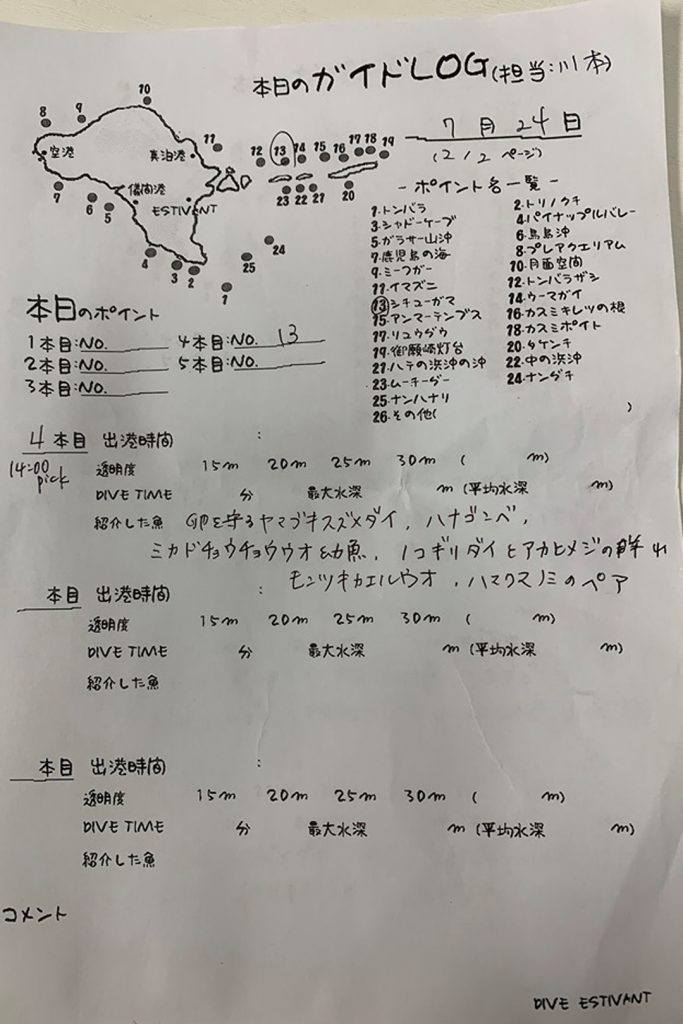 本日のガイドLOG(担当:川本)
7月24日
(2/2ページ)
10
8 9
空港
真泊港
11 12 13 14 15 16 17 18 19
儀間港
7 6 5
ESTIVANT
23 22 21 20
24
25
4 3 2
1
-ポイント名一覧-
1.トンバラ 2.トリノクチ
3.シャドーケーブ 4.パイナップルバレー
5.ガラサー山沖 6.鳥島沖
7.鹿児島の海 8.プレアクエリアム
9.ミーフガー 10.月面空間
11.イマズニ 12.トンバラザシ
13.シチューガマ 14.ウーマガイ
15.アンマーテンプス 16.カスミキレツの根
17.リュウグウ 18.カスミポイト
19.御願崎灯台 20.タケンチ
21.ハテの浜沖の沖 22.中の浜沖
23.ムーチーグー 24.ナンダチ
25.ナンハナリ
26.その他( )
本日のポイント
1本目:NO. 4本目:NO. 13
2本目:NO. 5本目:NO.
3本目:NO.
4本目 出港時間 :
14:00 pick
透明度 15m 20m 25m 30m ( m)
DIVE TIME 分 最大水深 m (平均水深 m)
紹介した魚 卵を守るヤマブキスズメダイ, ハナゴンベ,
ミカドチョウチョウウオ幼魚, ノコギリダイとアカヒメジの群れ
モンツキカエルウオ, ハマクマノミのペア
本目 出港時間 :
透明度 15m 20m 25m 30m ( m)
DIVE TIME 分 最大水深 m (平均水深 m)
紹介した魚
本目 出港時間 :
透明度 15m 20m 25m 30m ( m)
DIVE TIME 分 最大水深 m (平均水深 m)
紹介した魚
コメント
DIVE ESTIVANT